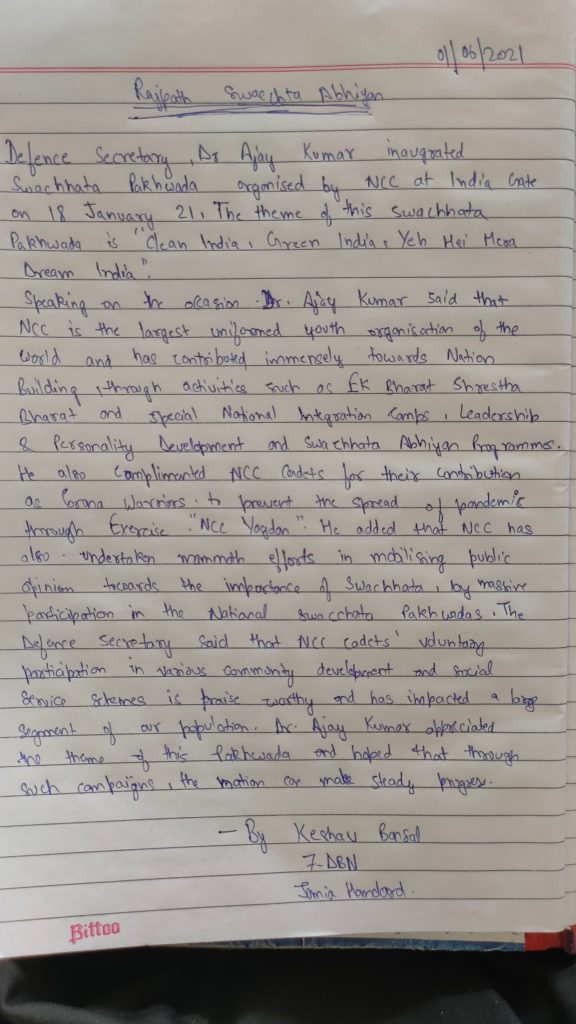 01/06/2021
Rajpath Swachta Abhiyan
Defence Secretary, Dr Ajay Kumar inaugrated
Swachhata Pakhwada organised by NCC at India Gate
on 18 January 21. The theme of this swachhata
Pakhwada is "Clean India, Green India, Yeh Hei Mera
Dream India".
Speaking on the occasion Dr. Ajay Kumar said that
NCC is the largest uniformed youth organisation of the
world and has contributed immensely towards Nation
Building, through activities such as Ek Bharat Shrestha
Bharat and special National Integration Camps, Leadership
& Personality Development and Swachhata Abhiyan Programmes.
He also complimented NCC Cadets for their contribution
as Corona Warriors. to prevent the spread of pandemic
through Exercise. "NCC Yogdan". He added that NCC has
also. undertaken mammth efforts in mobilising public
opinion towards the importance of Swachhata, by massive
participation in the National swacchata Pakhwadas. The
Defence Secretary said that NCC cadets' voluntary
participation in various community development and social
service schemes is praise worthy and has impacted a large
segment of our population. Dr. Ajay Kumar appreciated
the theme of this Pakhwada and hoped that through
such campaigns, the nation can make steady progress.
- By Keshav Bansal
7-DBN
Jamia Hamdard.
Bittoo